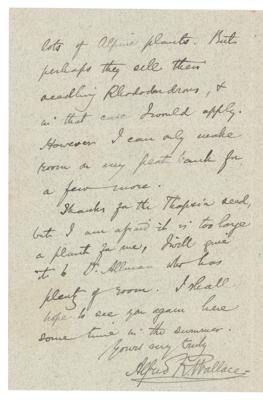 lots of Alpine plants. But
perhaps they sell their
seedling Rhododendrons, &
in that case I would apply.
However I can only make
room on my peat bank for
a few more.
Thanks for the Thapsia seed,
but I am afraid it is too large
a plant for me, I will give
it to D. Allman who has
plenty of room. I shall
hope to see you again here
some time in the summer.
Yours very truly
Alfred R. Wallace